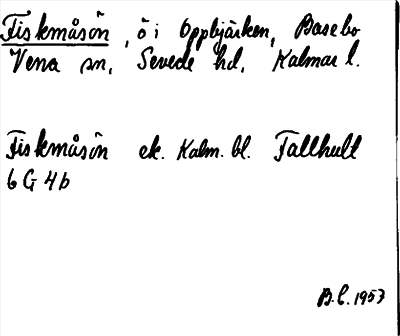 Fiskmåsön, ö i Oppbjärken, Basebo
Vena sn, Sevede hd, Kalmar l.
Fiskmåsön ek. Kalm. bl. Tallhult
6 G 4 b
B.C. 1957